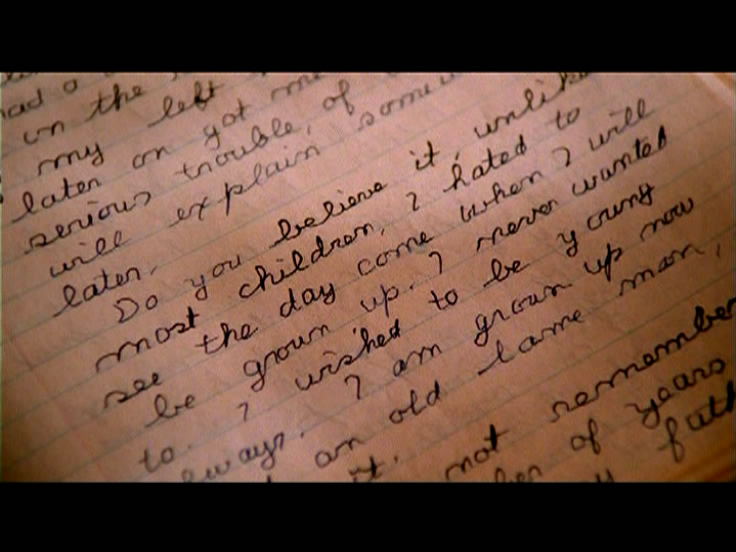 had a
on the
my left
later on got me
serious trouble, of
will explain some
later.
Do you believe it, unlike
most children, I hated to
see the day come when I will
be grown up. I never wanted
to. I wished to be young
always. I am grown up now
an old lame man,
it. not remember
of years